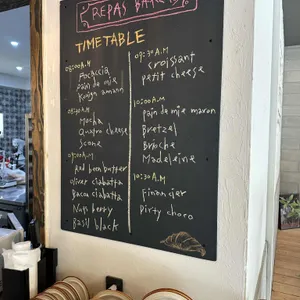 REPAS BAKERY
TIMETABLE
08:00A.M
Focaccia
Pain de mie
Kouign amann
08:30A.M
Mocha
Quatro cheese
Scone
09:00A.M
Red bean butter
Oliver ciabatta
Bacon ciabatta
Nuts berry
Basil black
09:30A.M
Croissant
Petit cheese
10:00A.M
Pain de mie maron
Bretzel
Brioche
Madeleine
10:30A.M
Financier
Dirty choco